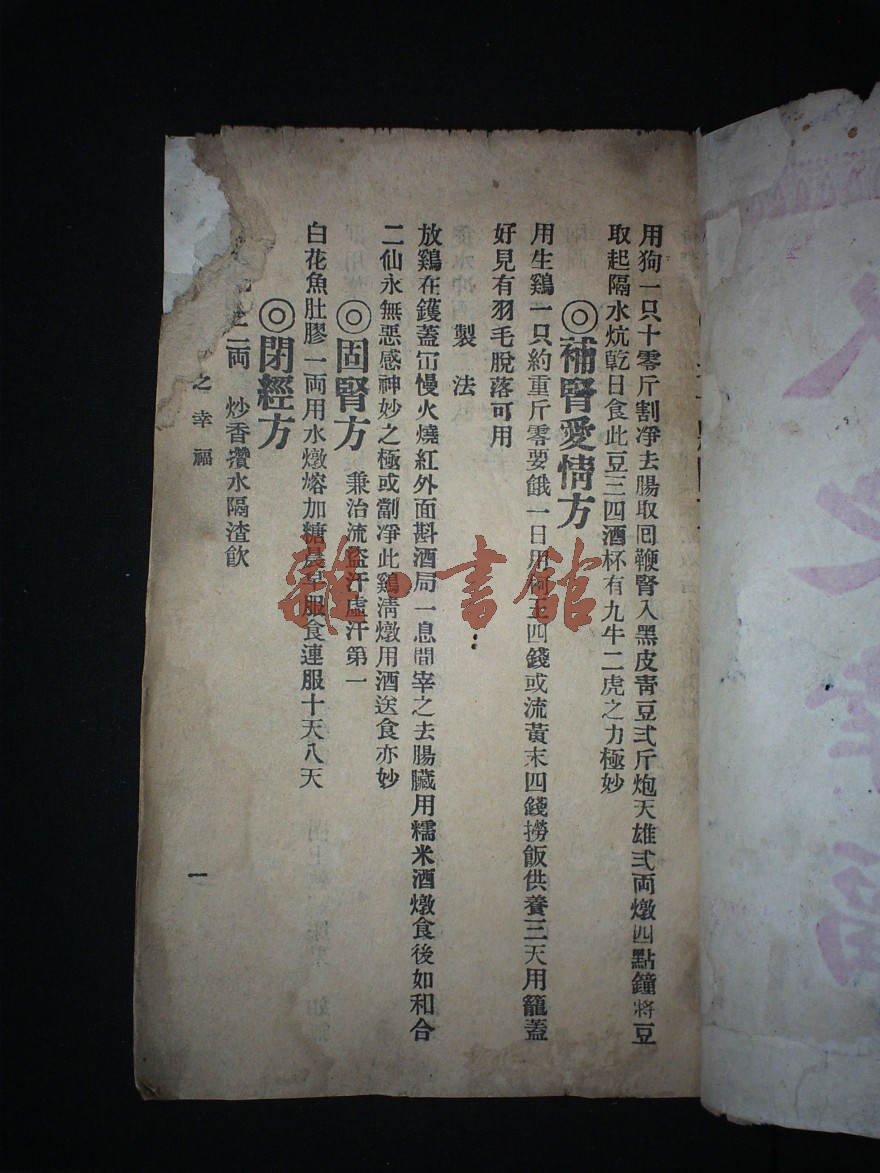 用狗一只十零斤割净去腸取回鞭腎入黑皮靑豆弍斤炮天雄弍両燉四點鐘將豆
取起隔水炕乾日食此豆三四酒杯有九牛二虎之力極妙
◎補腎愛情方
用生鷄一只約重斤零要餓一日用四錢或流黃末四錢撈飯供養三天用籠蓋
好見有羽毛脫落可用
製法
放鷄在鑊蓋冚慢火燒紅外面斟酒局一息間宰之去腸臟用糯米酒燉食後如和合
二仙永無惡感神妙之極或劏净此鷄淸燉用酒送食亦妙
◎固腎方 兼治流盜汗虛汗第一
白花魚肚膠一両用水燉熔加糖晨早服食連服十天八天
◎閉經方
二両 炒香攢水隔渣飲
之幸福
一
雜書館